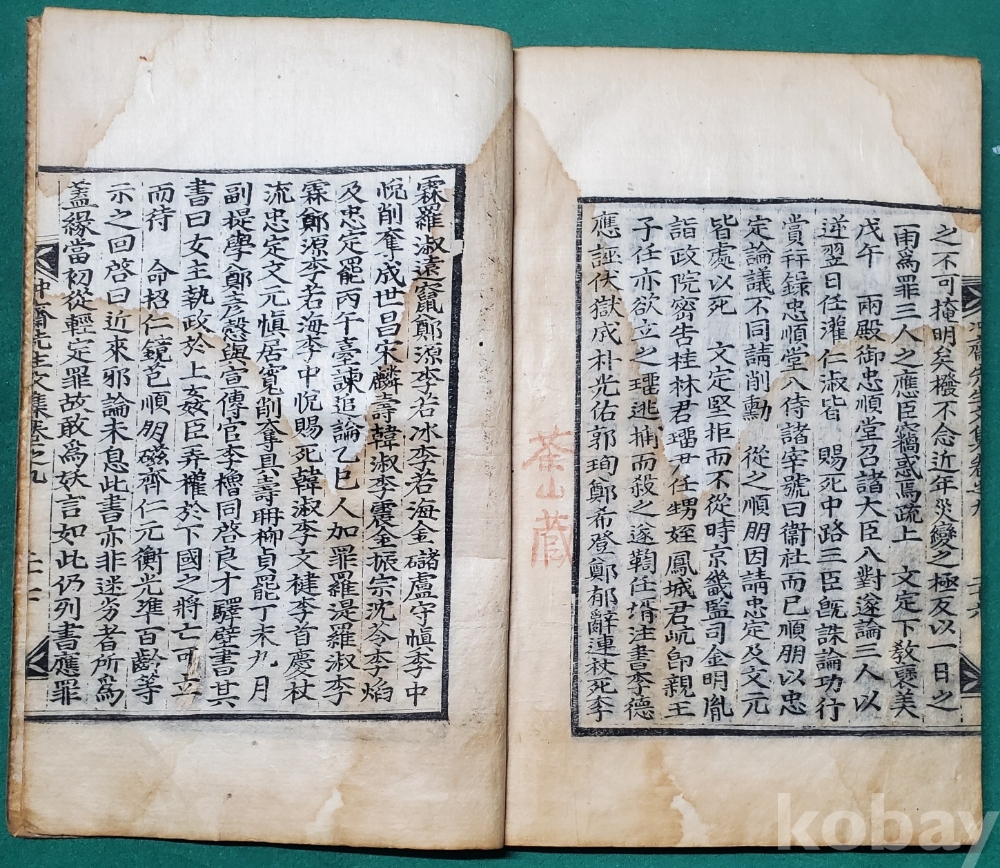 之不可掩明矣機不念近年災變之極友以一日之
雨爲罪三人之應臣竊惑焉疏上 文定下敎褒美
戊午 兩殿御忠順堂召諸大臣入對遂論三人以
逆翌日任灌仁淑皆 賜死中路三臣旣誅論功行
賞幷錄忠順堂入侍諸宰號曰衞社而已順朋以忠
定論議不同請削勳 從之順朋因請忠定及文元
皆處以死 文定堅拒而不從時京畿監司金明胤
詣政院密告桂林君瑠尹任甥姪鳳城君岏卽親王
子任亦欲立之瑠逃捕而殺之遂鞫任壻注書李德
應誣伏獄成朴光佑郭珣鄭希登鄭郁辭連杖死李
荼山藏
霖羅淑遠竄鄭源李若氷李若海金䃴盧守愼李中
悅削奪成世昌宋麟壽韓淑李震金振宗沈苓李焰
及忠定罷丙午臺諫追論乙巳人加罪羅湜羅淑李
霖鄭源李若海李中悅賜死韓淑李文楗李首慶杖
流忠定文元愼居寬削奪具壽聃柳貞罷丁未九月
副提學鄭彥慤與宣傳官李櫓同啓良才驛壁書其
書曰女主執政於上奸臣弄權於下國之將亡可立
而待 命招仁鏡芑順朋磁齊仁元衡光準百齡等
示之回啓曰近來邪論未息此書亦非迷劣者所爲
蓋緣當初從輕定罪故敢爲妖言如此仍列書應罪
冲齋先生文集卷之九